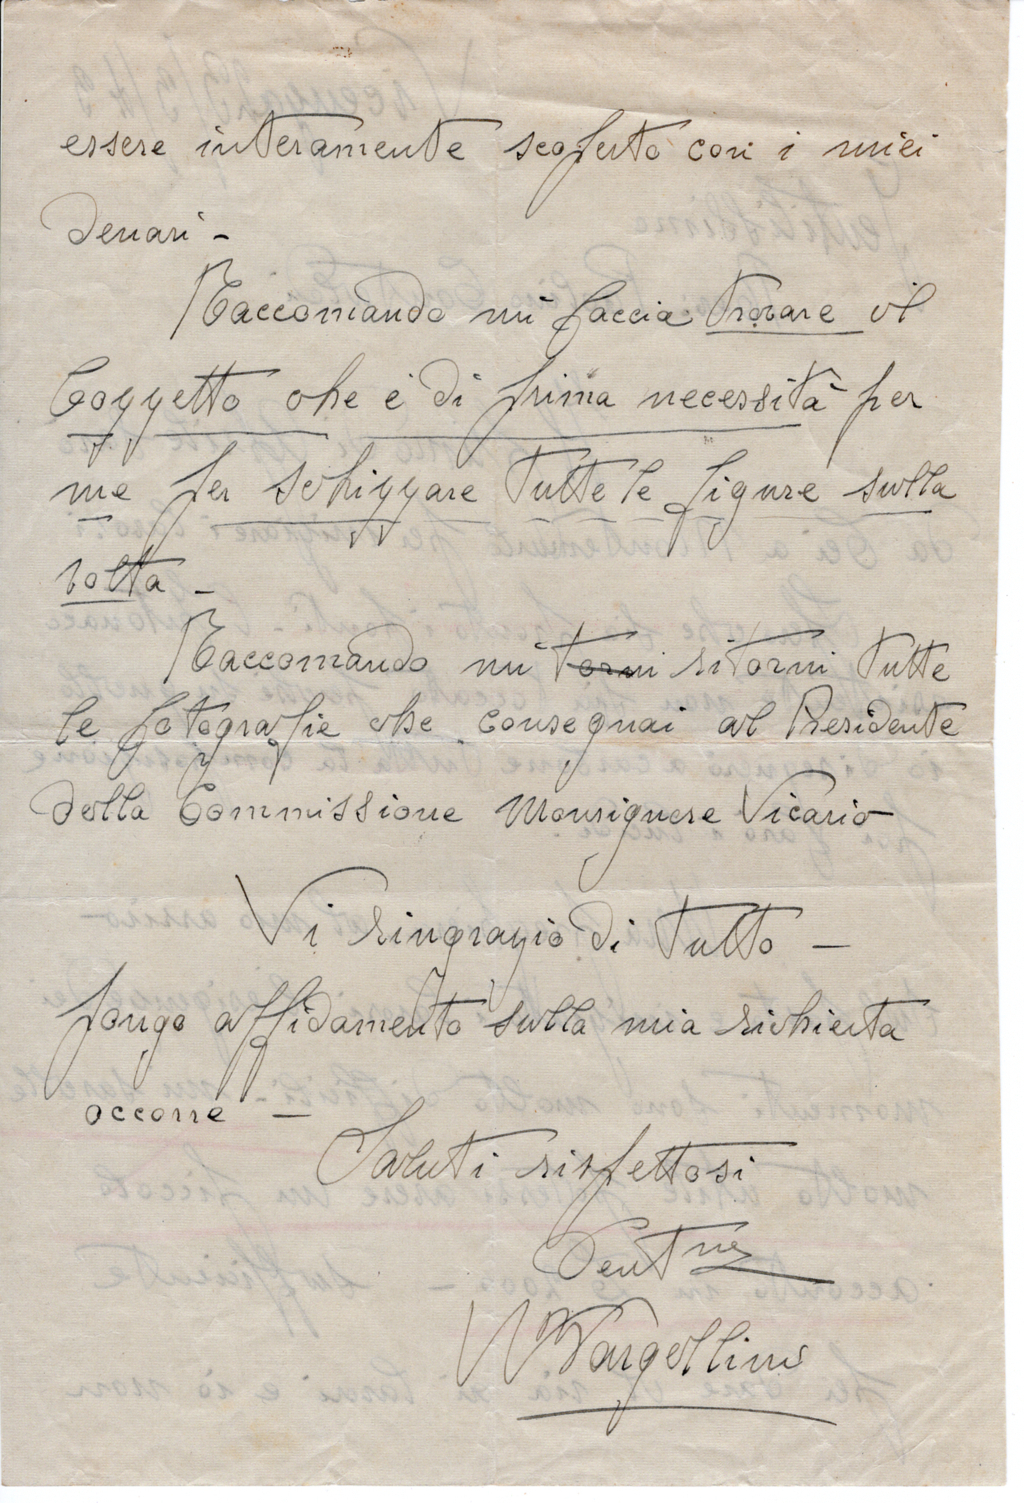 essere interamente scoperto con i miei
denari -
Raccomando mi faccia trovare il
Bozzetto che è di prima necessità per
me per schizzare tutte le figure sulla
volta -
Raccomando mi torni ritorni tutte
le fotografie che consegnai al Presidente
della Commissione Monsignore Vicario
Vi ringrazio di tutto -
pongo affidamento sulla mia richiesta
occorre -
Saluti rispettosi